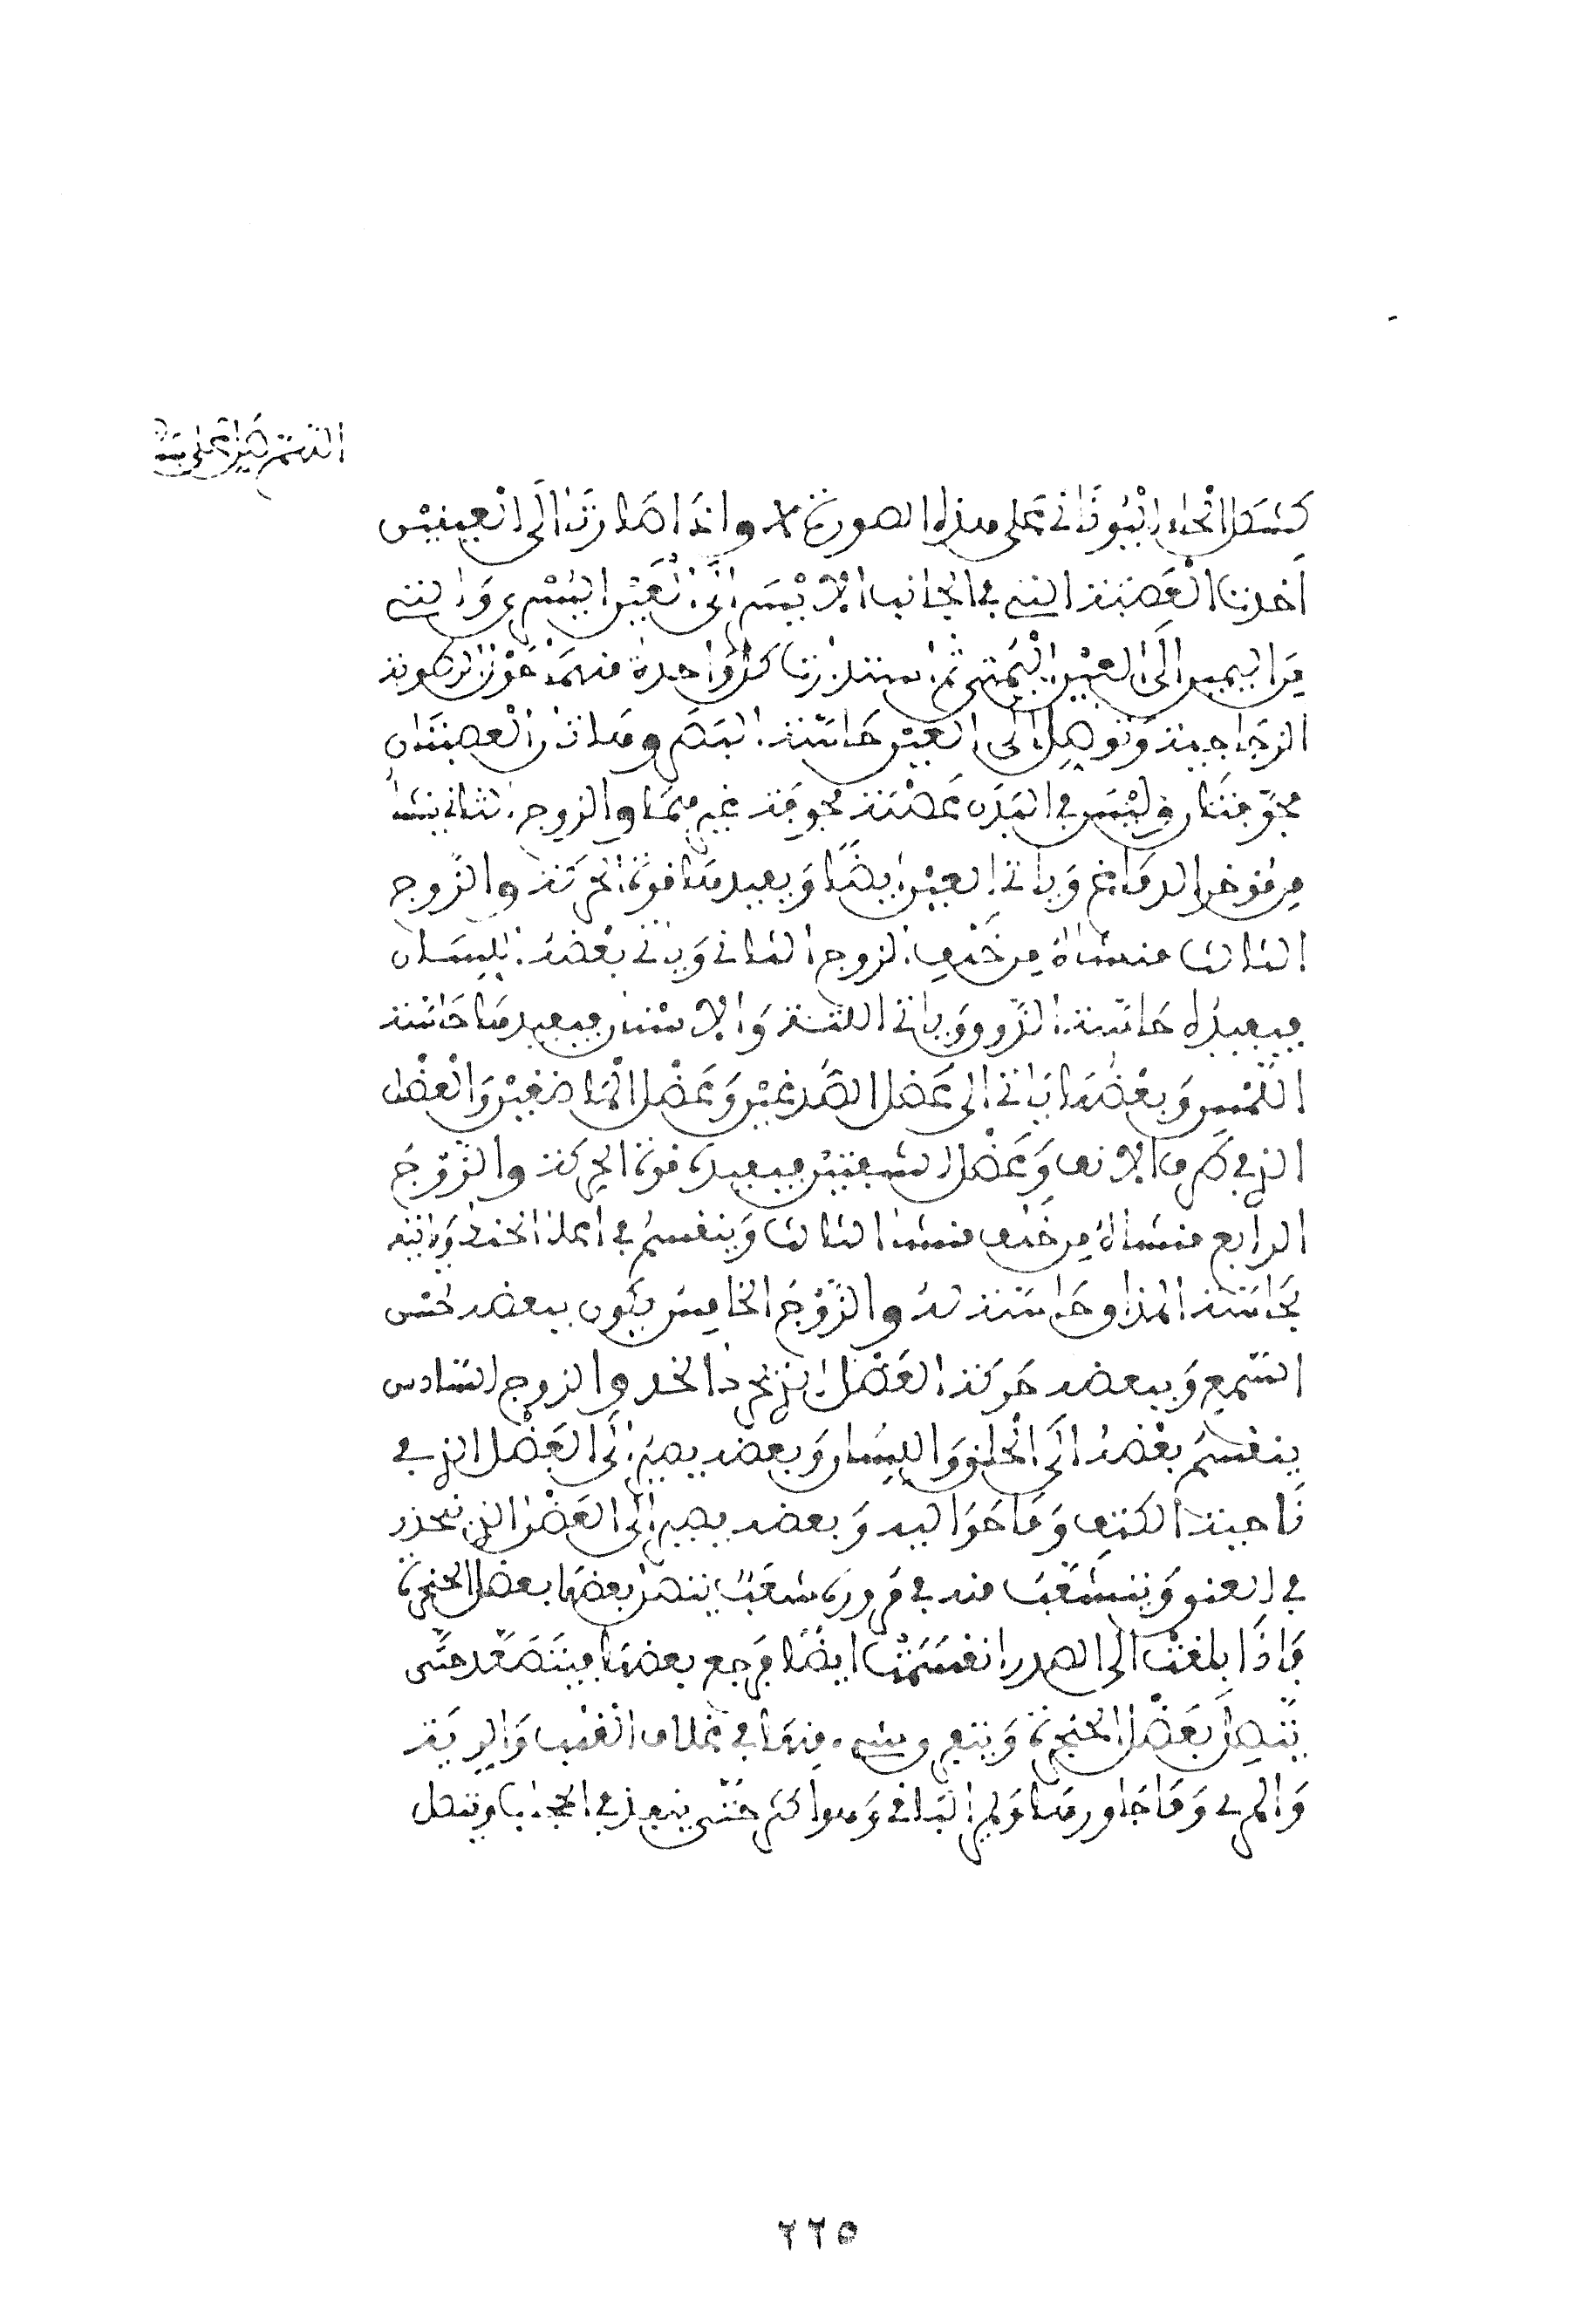 كشكل الحاء اليوناني على هذه الصورة X وإذا صارتا إلى العينين
أخذت العصبة التي في الجانب الأيسر إلى العين اليسرى والتي
من اليمين إلى العين اليمنى ثم استدارت كل واحدة منهما حول الرطوبة
الزجاجية وتوصل إلى العين حاسة البصر وهاتان العصبتان
مجوفتان وليس في البدن عصبة مجوفة غيرهما والزوج الثاني ينشأ
من مؤخر الدماغ ويأتي العين أيضا ويفيدها قوة الحركة والزوج
الثالث منشأه من خلف الزوج الثاني ويأتي بعضه اللسان
فيفيده حاسة الذوق ويأتي اللثة والأسنان فيفيدها حاسة
اللمس وبعضها يأتي إلى عضل الصدغين وعضل الماضغين والعضل
الذي في طرف الأنف وعضل الشفتين فيفيده قوة الحركة والزوج
الرابع منشأه من خلف منشأ الثالث وينقسم في أعلا الحنك
بحاسة المذاق حاسة له والزوج الخامس يكون ببعضه حس
السمع وببعضه حركة العضل الذي يحرك الخد والزوج السادس
ينقسم بعضه إلى الحلق واللسان وبعضه يصير إلى العضل الذي في
ناحية الكتف وما حواليه وبعضه يصير إلى العضل الذي ينحدر
في العنق ويتشعب منه في مروره شعب يتصل بعضها بعضل الحنجرة
فإذا بلغت إلى الصدر انقسمت أيضا فرجع بعضها فيتصعد حتى
يتصل بعضل الحنجرة ويتفرق شيء منها في غلاف القلب والرية
والمري وما جاورها ويمر الباقي وهو أكثره حتى ينفذ في الحجاب ويتصل
٢٢٥